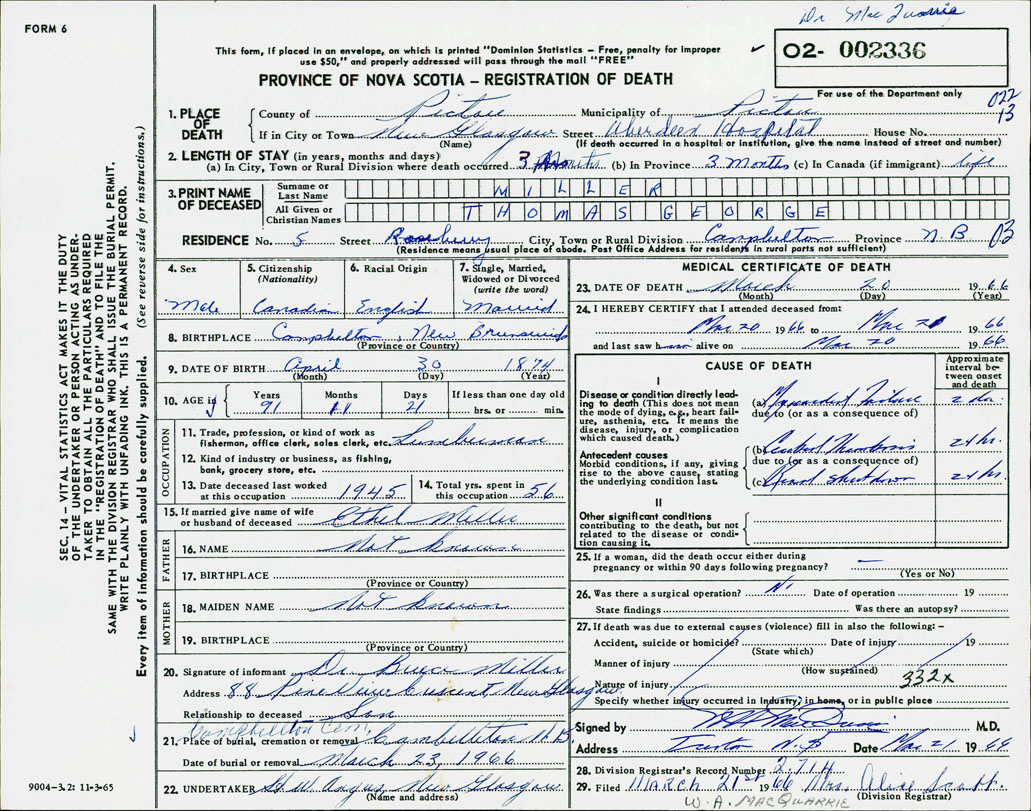 Dr Mac Quarrie
FORM 6
This form, if placed in an envelope, on which is printed "Dominion Statistics – Free, penalty for improper
use $50," and properly addressed will pass through the mail "FREE"
✓ O2- 002336
PROVINCE OF NOVA SCOTIA – REGISTRATION OF DEATH
For use of the Department only
022
13
1. PLACE OF DEATH
County of Pictou Municipality of Pictou
If in City or Town New Glasgow Street Aberdeen Hospital House No.
(Name) (If death occurred in a hospital or institution, give the name instead of street and number)
2. LENGTH OF STAY (in years, months and days)
(a) In City, Town or Rural Division where death occurred 3 Months (b) In Province 3 Months (c) In Canada (if immigrant) life
3. PRINT NAME OF DECEASED
Surname or Last Name MILLER
All Given or Christian Names THOMAS GEORGE
RESIDENCE No. 5 Street Roseberry City, Town or Rural Division Campbelton Province N.B 03
(Residence means usual place of abode. Post Office Address for residents in rural parts not sufficient)
4. Sex
Male
5. Citizenship (Nationality)
Canadian
6. Racial Origin
English
7. Single, Married, Widowed or Divorced (write the word)
Married
8. BIRTHPLACE Campbelton, New Brunswick
(Province or Country)
9. DATE OF BIRTH April 30 1874
(Month) (Day) (Year)
10. AGE in Years Months Days If less than one day old
91 21 hrs. or min.
OCCUPATION
11. Trade, profession, or kind of work as
fisherman, office clerk, sales clerk, etc. Lumberman
12. Kind of industry or business, as fishing,
bank, grocery store, etc.
13. Date deceased last worked
at this occupation 1945
14. Total yrs. spent in
this occupation 56
15. If married give name of wife
or husband of deceased Ethel Miller
FATHER
16. NAME Not known
17. BIRTHPLACE
(Province or Country)
MOTHER
18. MAIDEN NAME Not known
19. BIRTHPLACE
(Province or Country)
20. Signature of informant Dr. Bruce Miller
Address 88 Pine View Crescent, New Glasgow
Relationship to deceased Son
Campbellton Cem,
21. Place of burial, cremation or removal Cambellton N.B.
Date of burial or removal March 23, 1966
22. UNDERTAKER H.W. Angus, New Glasgow
(Name and address)
MEDICAL CERTIFICATE OF DEATH
23. DATE OF DEATH March 20 1966
(Month) (Day) (Year)
24. I HEREBY CERTIFY that I attended deceased from:
Mar 20 1966 to Mar 20 1966
and last saw him alive on Mar 20 1966
CAUSE OF DEATH
Approximate interval between onset and death
I
Disease or condition directly leading
to death (This does not mean
the mode of dying, e.g., heart failure,
asthenia, etc. It means the
disease, injury, or complication
which caused death.)
(a) Failure
due to (or as a consequence of)
Antecedent causes
Morbid conditions, if any, giving
rise to the above cause, stating
the underlying condition last.
(b) Thrombosis 24 hr.
due to (or as a consequence of)
(c) 24 hr.
II
Other significant conditions
contributing to the death, but not
related to the disease or condition
causing it.
25. If a woman, did the death occur either during
pregnancy or within 90 days following pregnancy? —
(Yes or No)
26. Was there a surgical operation? No Date of operation 19
State findings Was there an autopsy?
27. If death was due to external causes (violence) fill in also the following: –
Accident, suicide or homicide? Date of injury 19
(State which)
Manner of injury
(How sustained)
Nature of injury 332x
Specify whether injury occurred in industry, in home, or in public place
Signed by M.D.
Address Date Mar 21 1966
28. Division Registrar's Record Number 2714
29. Filed MARCH 21st 1966 Mrs. Alice Scott.
(Division Registrar)
W. A. MACQUARRIE
SEC. 14 – VITAL STATISTICS ACT MAKES IT THE DUTY
OF THE UNDERTAKER OR PERSON ACTING AS UNDERTAKER
TO OBTAIN ALL THE PARTICULARS REQUIRED
IN THE "REGISTRATION OF DEATH" AND TO FILE THE
SAME WITH THE DIVISION REGISTRAR WHO SHALL ISSUE THE BURIAL PERMIT.
WRITE PLAINLY WITH UNFADING INK. THIS IS A PERMANENT RECORD.
Every item of information should be carefully supplied. (See reverse side for instructions.)
9004-3.2: 11-3-65